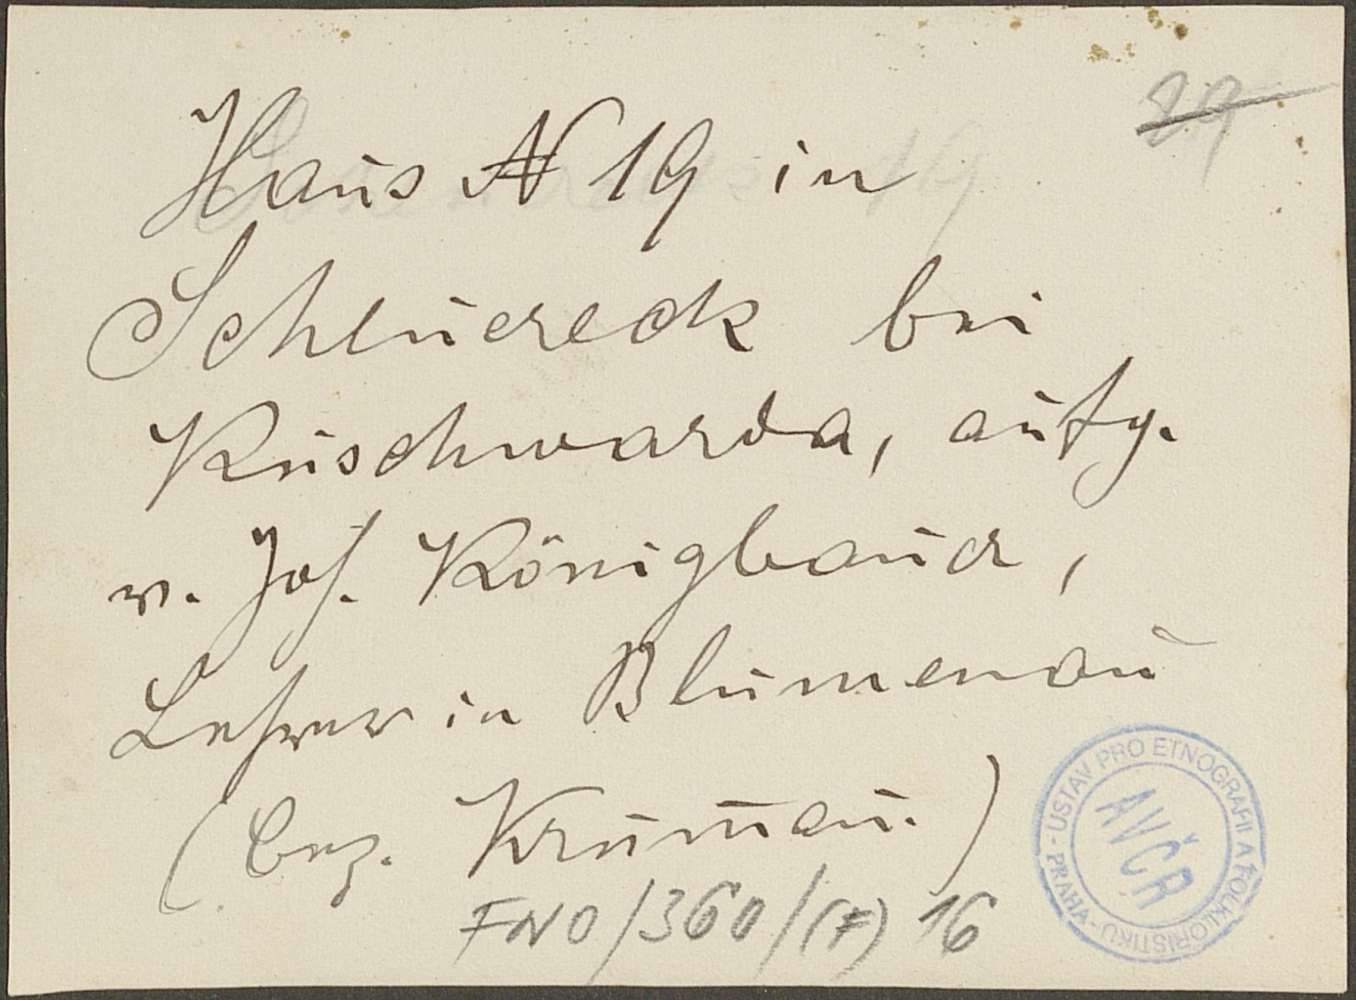 29
Haus N 19 in
Scheuereck bei
Kuschwarda, aufg.
v. Joh. Königbauer,
Lehrer in Blumenau
(bez. Krumau.)
FNO/360/(F) 16
ÚSTAV PRO ETNOGRAFII A FOLKLORISTIKU - PRAHA -
AVČR